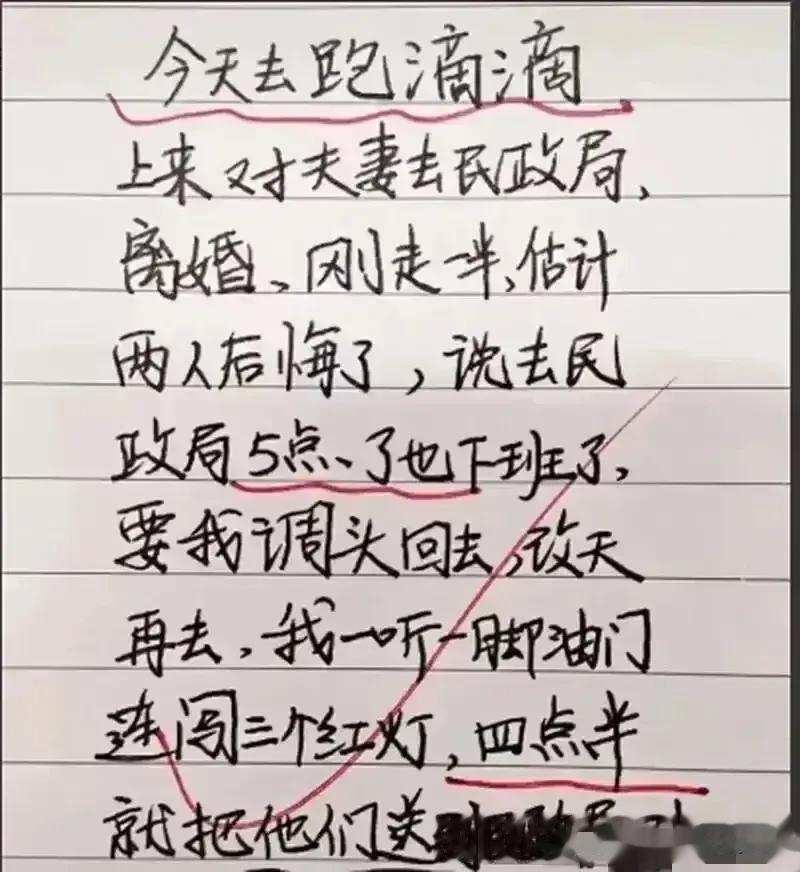 今天去跑滴滴
上来对夫妻去民政局,
离婚、刚走一半,估计
两人后悔了,说去民
政局5点、了也下班了,
要我调头回去,改天
再去,我一听一脚油门
连闯三个红灯,四点半
就把他们送到民政局